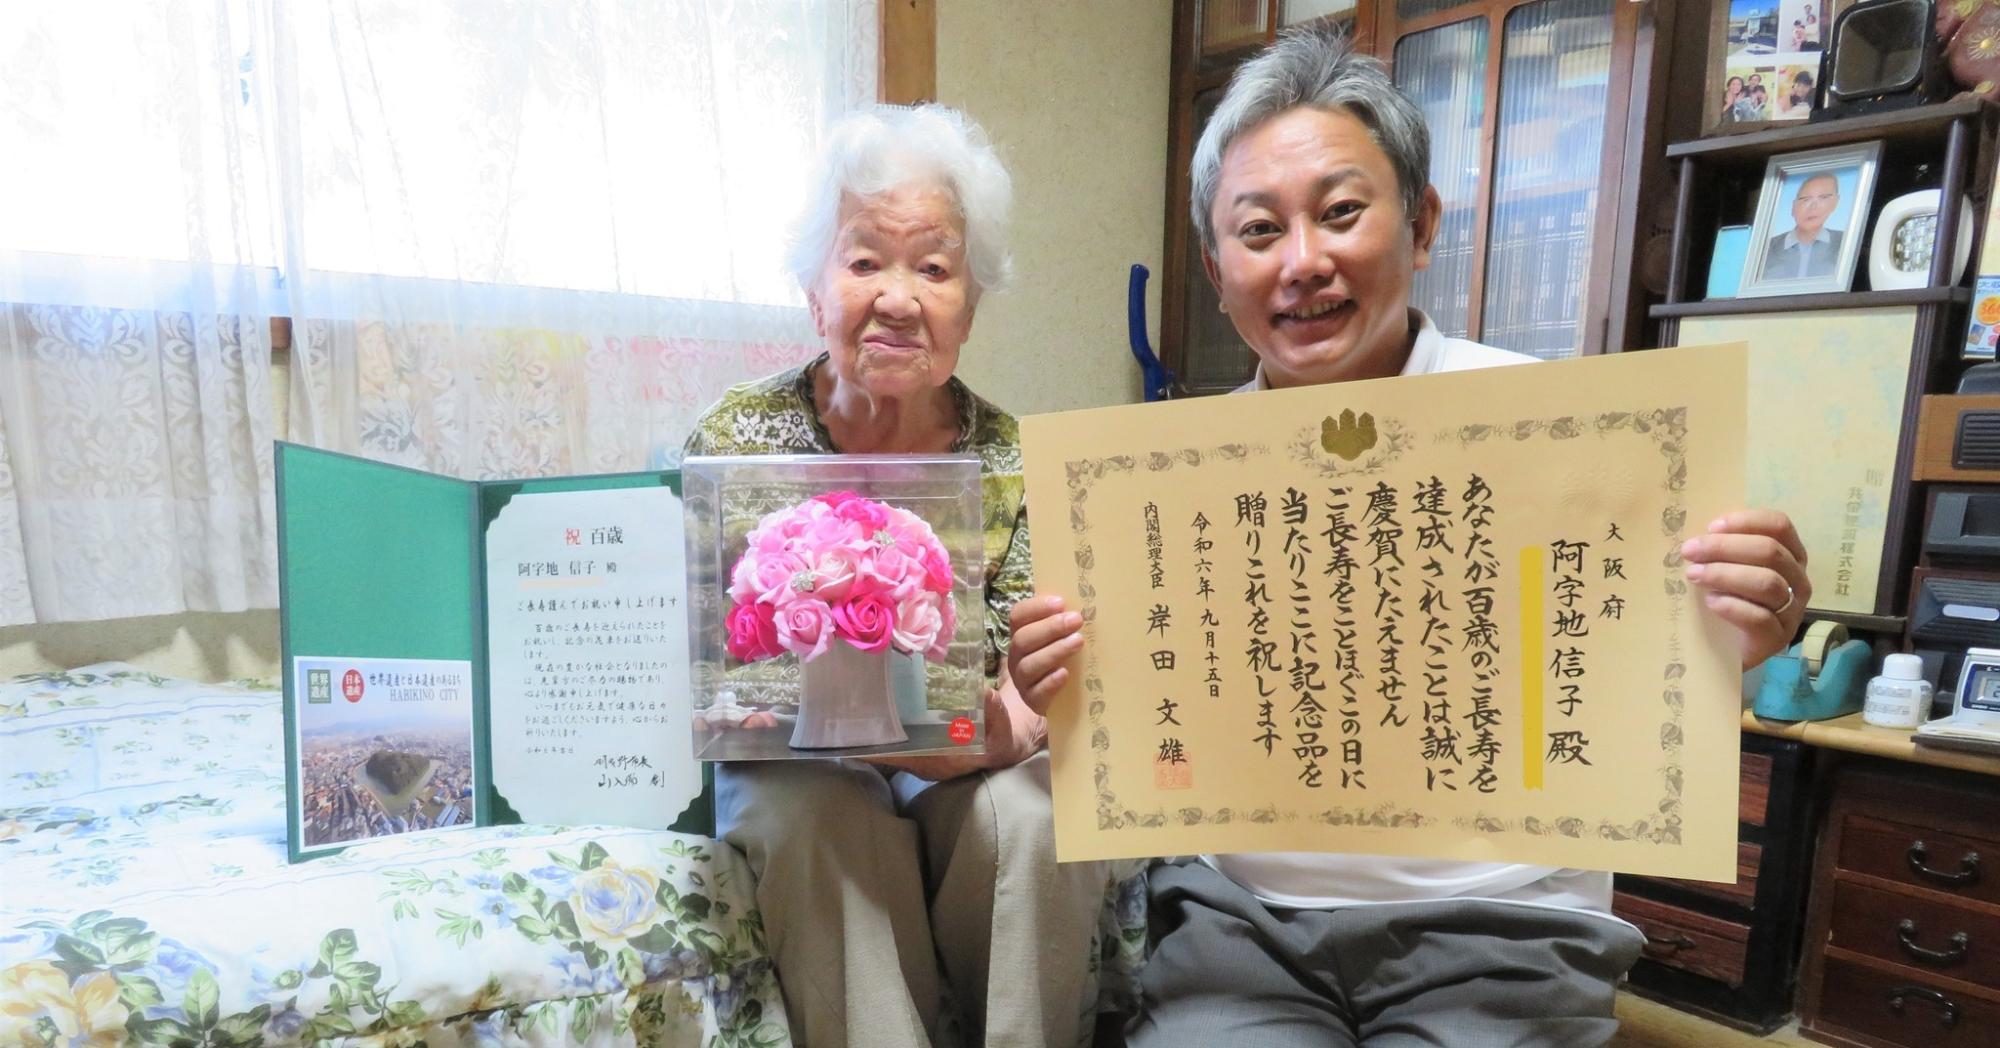 大阪府
阿字地信子殿
あなたが百歳のご長寿を
達成されたことは誠に
慶賀にたえません
ご長寿をことほぐこの日に
当たりここに記念品を
贈りこれを祝します
令和六年九月十五日
内閣総理大臣 岸田文雄
祝 百歳
阿字地 信子 殿
ご長寿謹んでお祝い申し上げます
百歳のご長寿を迎えられたことを
お祝いし、記念の花束をお送りいた
します。
現在の豊かな社会となりましたの
は、先輩方のご尽力の賜物であり、
心より感謝申し上げます。
いつまでもお元気で健康な日々
をお過ごしくださいますよう、心からお
祈りいたします。
令和6年吉日
羽曳野市長
山入端 創
世界
遺産
日本
遺産
世界遺産と日本遺産のあるまち
HABIKINO CITY
MADE
IN
JAPAN